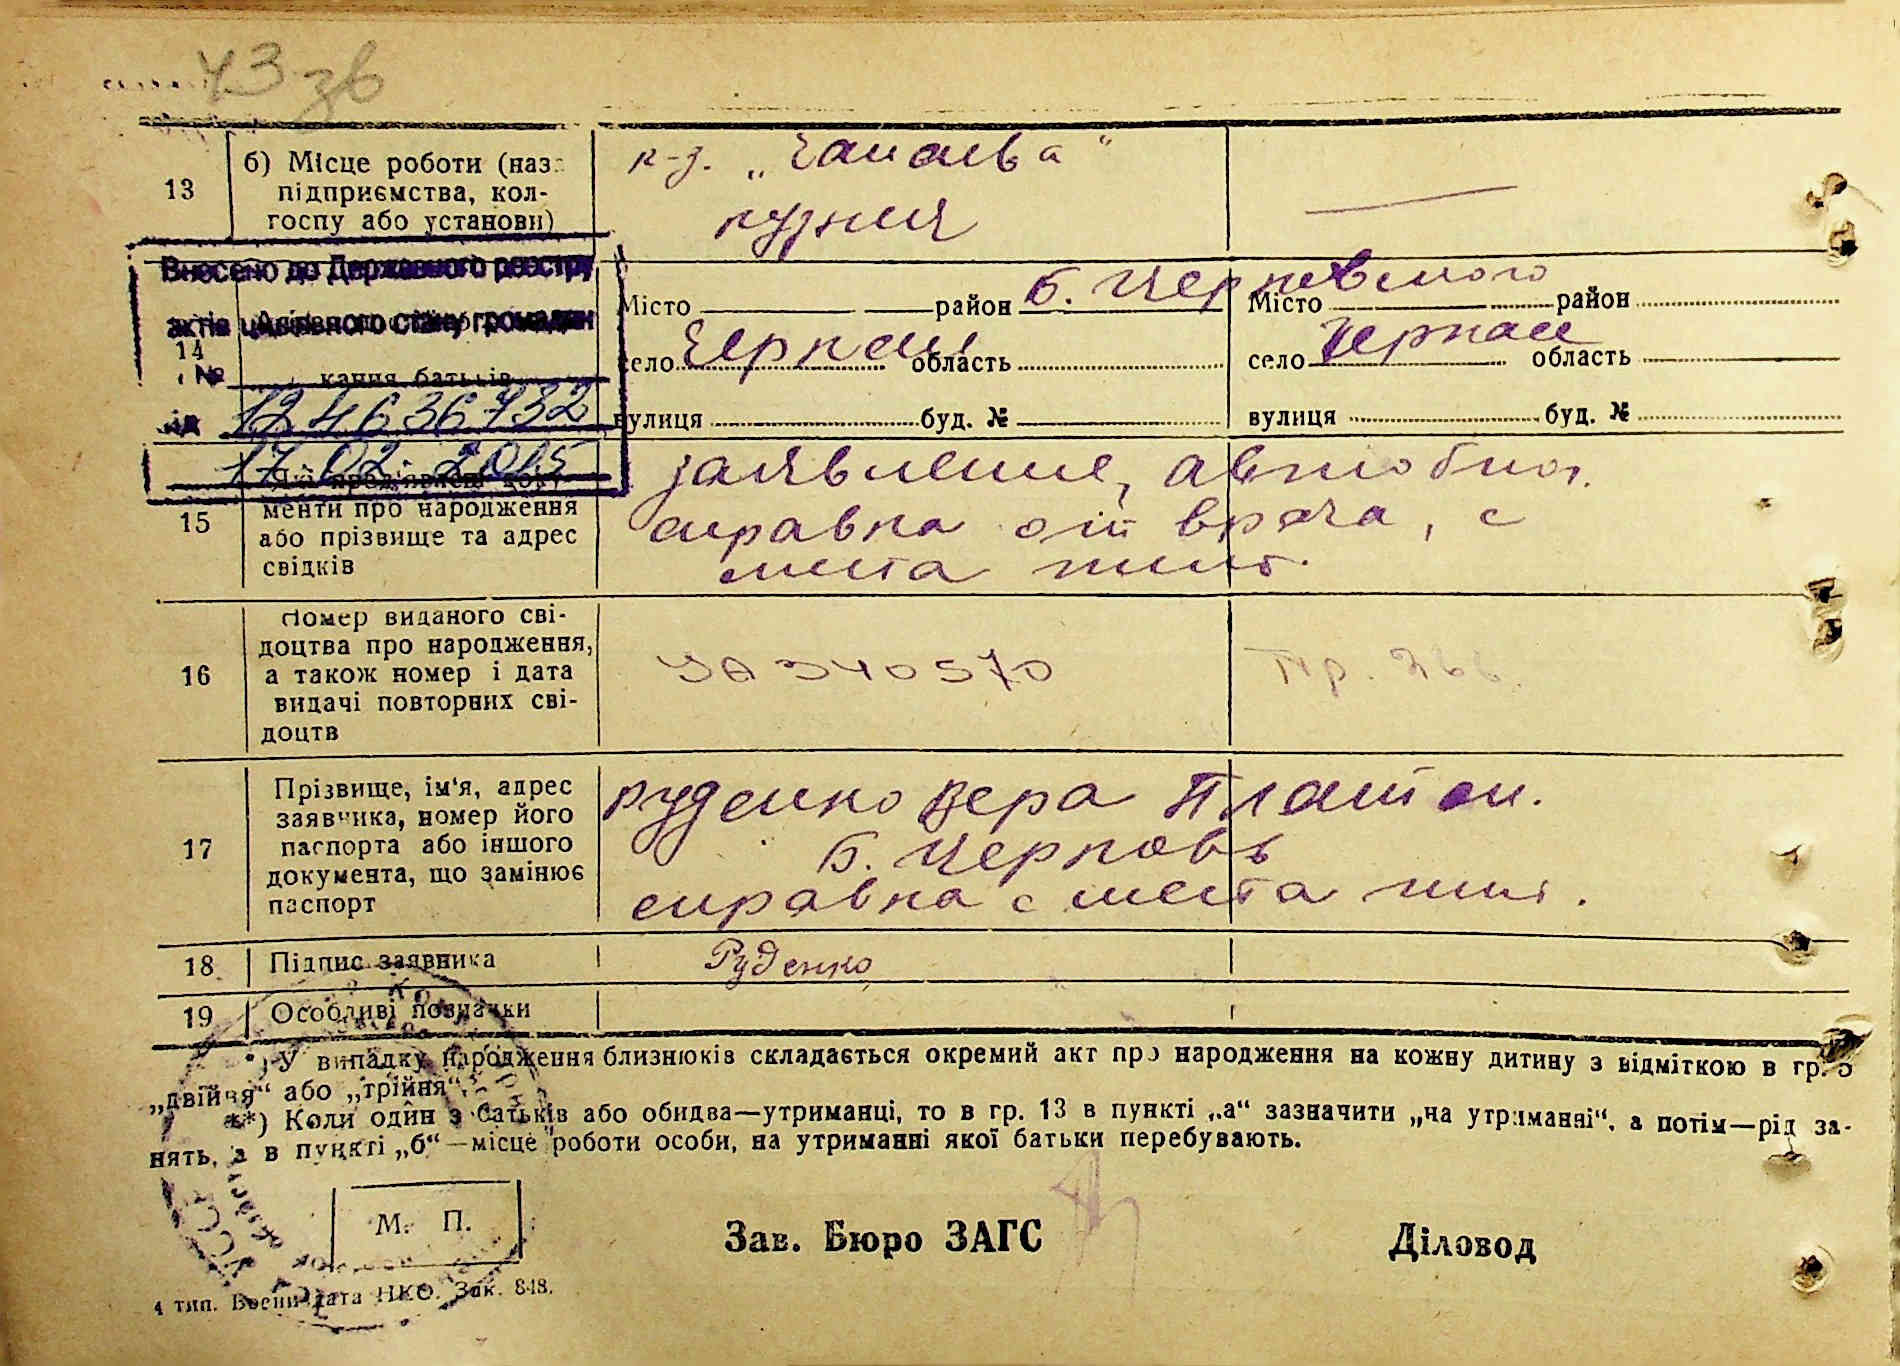 43 зв
13
б) Місце роботи (наз.
підприємства, кол-
госпу або установи)
к-з. „Чапаева"
кузня
Внесено до Державного реєстру
актів цивільного стану громадян
14
№ 124636732
кання батьків
від 17.02.2015
Місто район
Б. Черковского
село Черкаси область
вулиця буд. №
Місто район
село Черкас область
вулиця буд. №
15
менти про народження
або прізвище та адрес
свідків
заявление, автобиог.
справка от врача, с
места жит.
16
Номер виданого сві-
доцтва про народження,
а також номер і дата
видачі повторних сві-
доцтв
УА 340570
17
Прізвище, ім'я, адрес
заявника, номер його
паспорта або іншого
документа, що замінює
паспорт
Руденко Вера Платон.
справка с места жит.
18
Підпис заявника
Руденко
19
Особливі позначки
*) У випадку народження близнюків складається окремий акт про народження на кожну дитину з відміткою в гр. 5
„двійня“ або „трійня“.
**) Коли один з батьків або обидва—утриманці, то в гр. 13 в пункті „а“ зазначити „на утриманні“, а потім—рід за-
нять, а в пункті „б“—місце роботи особи, на утриманні якої батьки перебувають.
М. П.
Зав. Бюро ЗАГС
Діловод
4 тип. Воениздата НКО. Зак. 848.